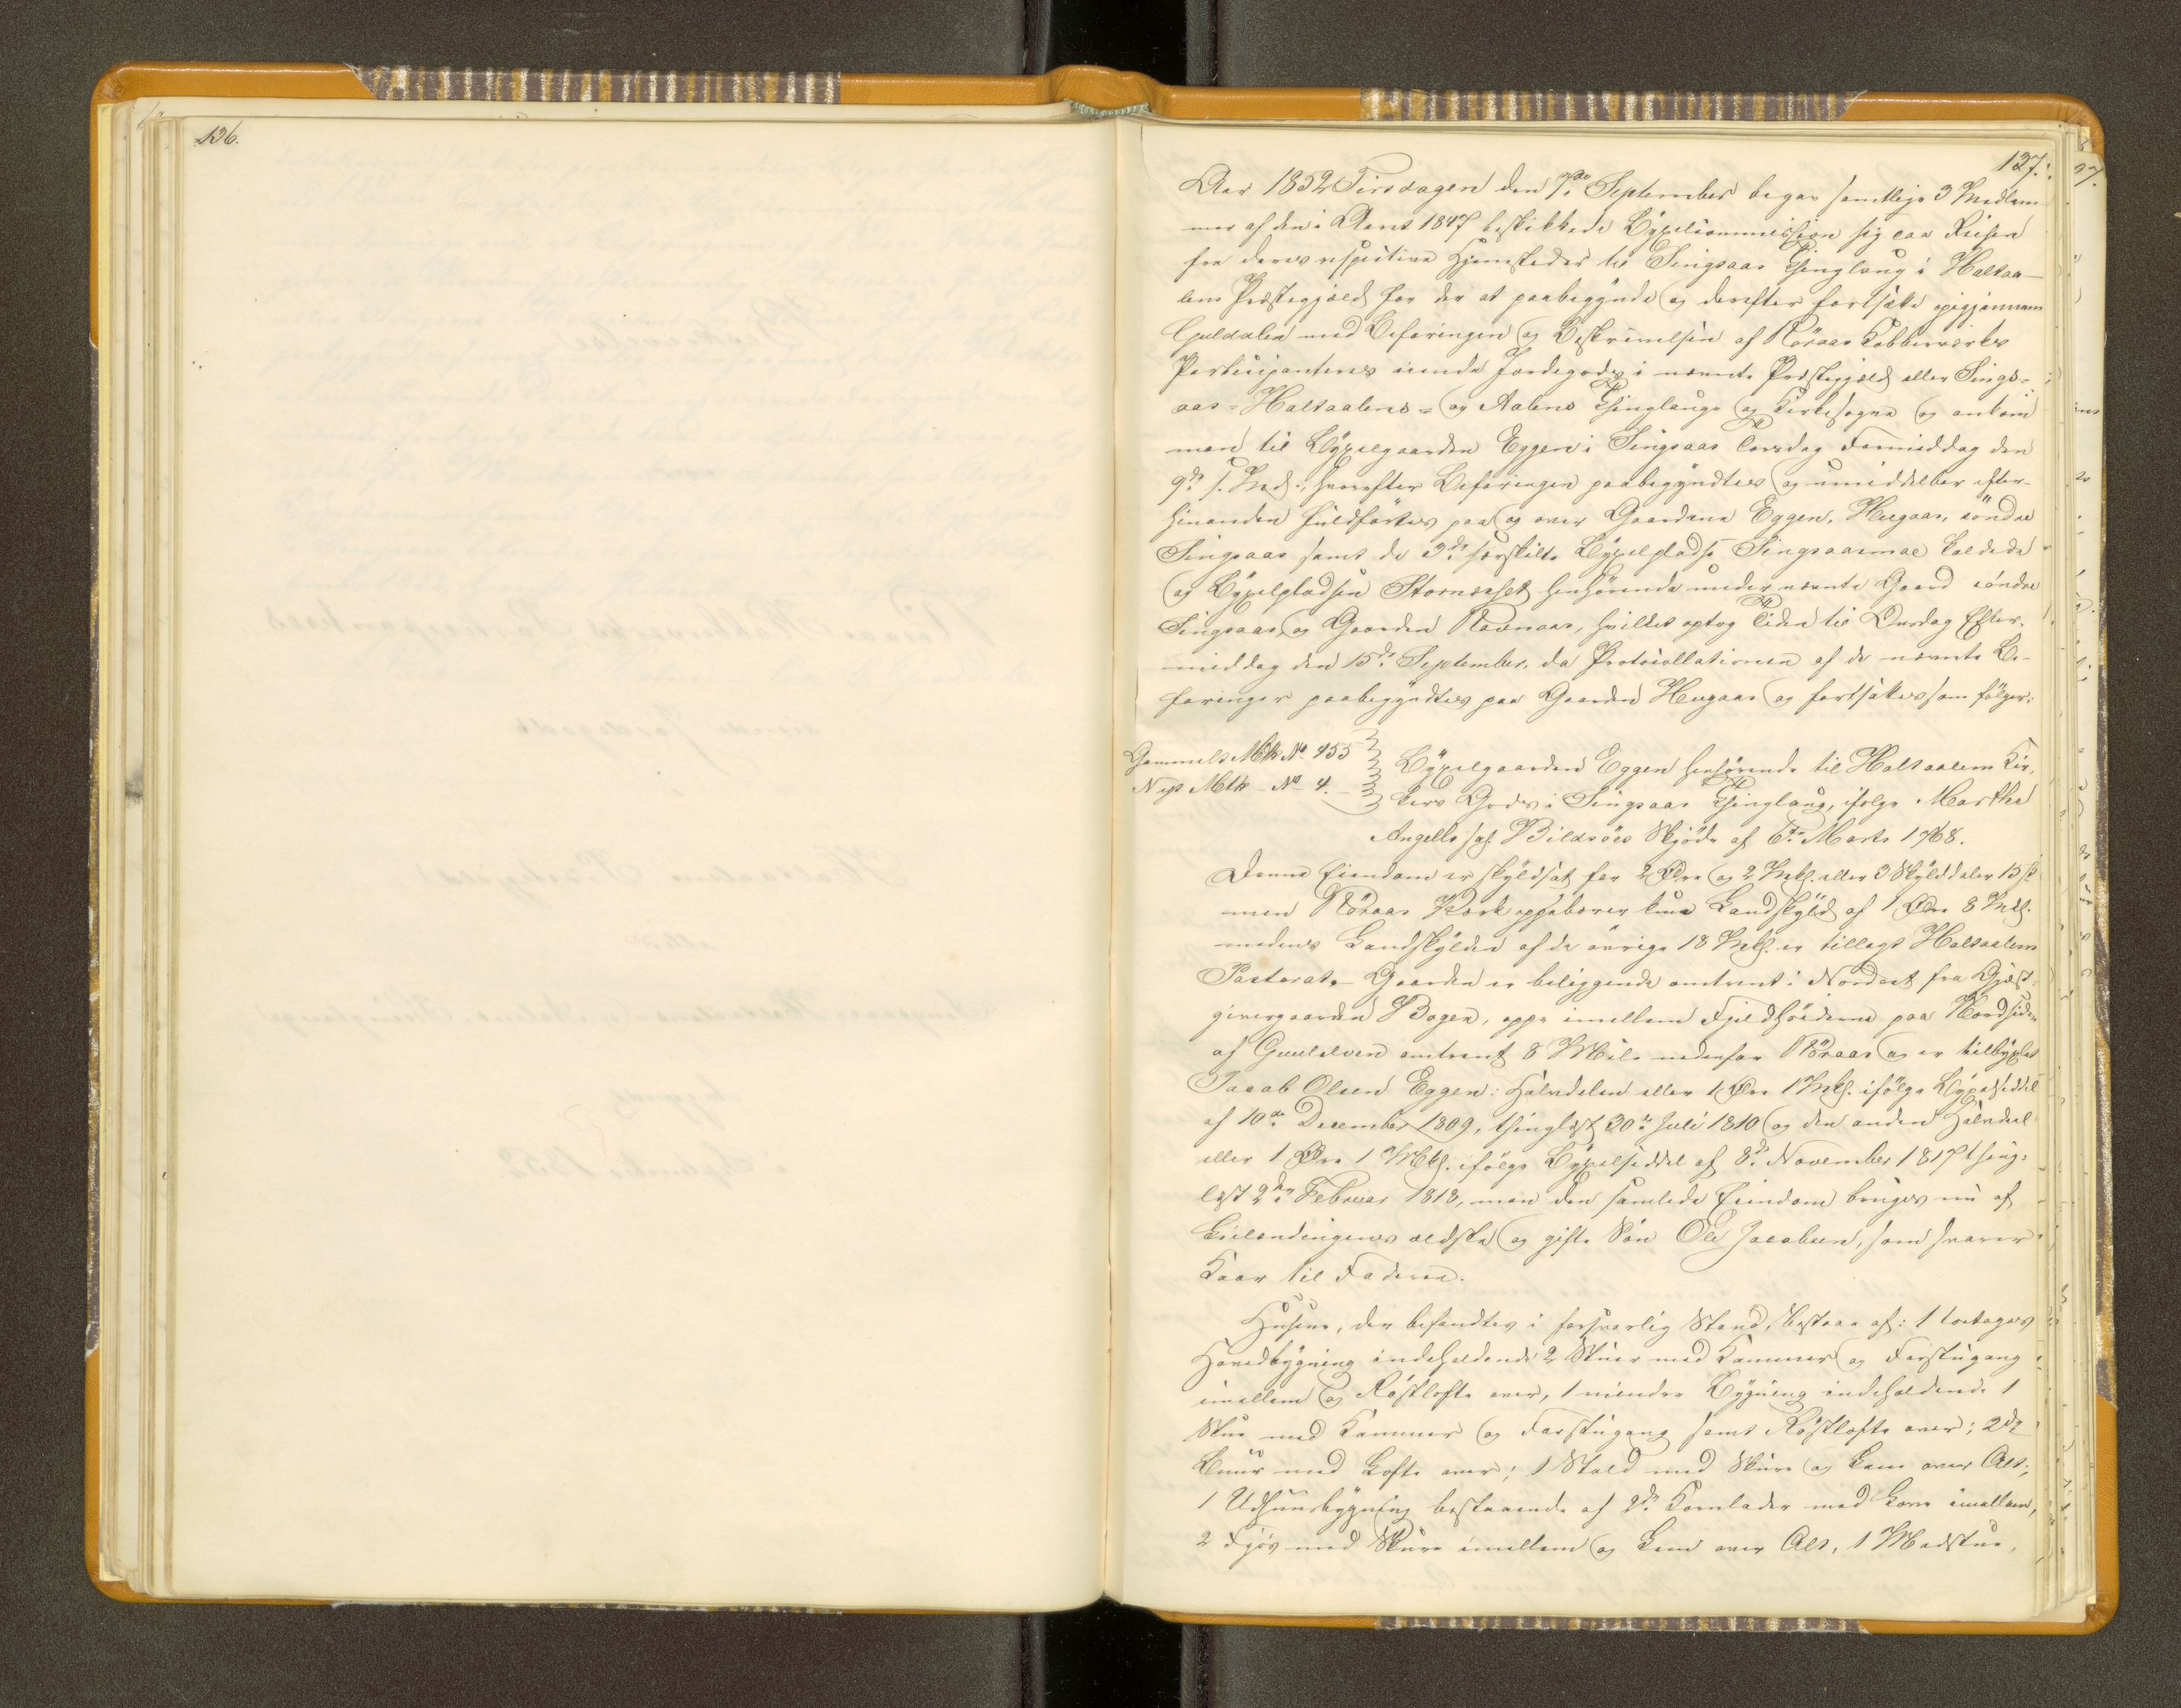 136.
137.
Aar 1852 Tirsdagen den 7de September begav samtlige 3 Medlem
mer af den i Aaret 1847 beskikkede Bÿxelcommission sig paa Reisen
fra deres respective Hjemsteder til Singsaas Thinglaug i Holtaa-
lens Præstegjæld for der at paabegÿnde og derefter fortsætte opigjennem
Guldalen med Befaringen og Beskrivelsen af Röraas Kobberværks
Participanteres eiende Jordegods i nævnte Præstegjæld eller Sings-
aas- Holtaalens- og Aalens Thinglauge og Kirkesogne og ankom
man til Bÿxelgaarden Eggen i Singsaas Torsdag Formiddag den
9de s. Md., hvorefter Befaringen paabegÿndtes og umiddelbar efter-
hinanden fuldförtes paa og over Gaardene Eggen, Heegaas, söndre
Singsaas samt de 3de særskilte Bÿxelpladse Singsaasmoe kaldede
og Bÿxelpladsen Stornæsset henhörende under nævnte Gaard söndre
Singsaas, og Gaarden Ravnaas, hvilket optog Tiden til Onsdag Efter-
middag den 15de September, da Protocollationen af de nævnte Be-
faringer paabegÿndtes paa Gaarden Heegaas og fortsattes som fölger:
Gammelt Mtk. No. 155
Nyt Mtk - No 4. -
Bÿxelgaarden Eggen henhörende til Holtaalens Kir-
kes Gods i Singsaas Thinglaug, ifölge Marthe
Angells sal. Bildsöes Skjöde af 6te Marts 1768.
Denne Eiendom er skÿldsat for 2 Öre og 2 Mkl. eller 3 Skÿlddaler 15 s
men Röraas Værk oppebærer kun Landskÿld af 1 Öre 8 Mkl.
medens Landskÿlden af de övrige 18 Mkl. er tillagt Holtaalens
Pastorat. Gaarden er beliggende omtrent i Nordost fra Gjæst-
givergaarden Bogen, oppe imellem Fjeldhöiderne paa Nordsiden
af Guulelven omtrent 8 Mile nedenfor Röraas og er tilbÿxlet
Jacob Olsen Eggen: Halvdelen eller 1 Öre 1 Mkl. ifölge Bÿxelseddel
af 10de December 1809, thinglæst 30te Juli 1810 og den anden Halvdeel
eller 1 Öre 1 Mkl. ifölge Bÿxelseddel af 8de November 1817 thing-
læst 2den Februar 1818, men den samlede Eiendom bruges nu af
Leilændingens ældste og gifte Sön Ole Jacobsen, som svarer
Kaar til Faderen.
Husene, der befandtes i forsvarlig Stand, bestaae af: 1 toetages
Hovedbÿgning indeholdende 2 Stuer med Kammer og Forstugang
imellem og Röstlofte over, 1 mindre Bÿgning indeholdende 1
Stue med Kammer og Forstugang samt Röstlofte over; 2de
Buur med Lofte over; 1 Stald med Skure og Lem over Alt;
1 Udhuusbÿgning bestaaende af 2de Kornlader med Love imellem,
2 Fjös med Skure imellem og Lem over Alt, 1 Madstue,